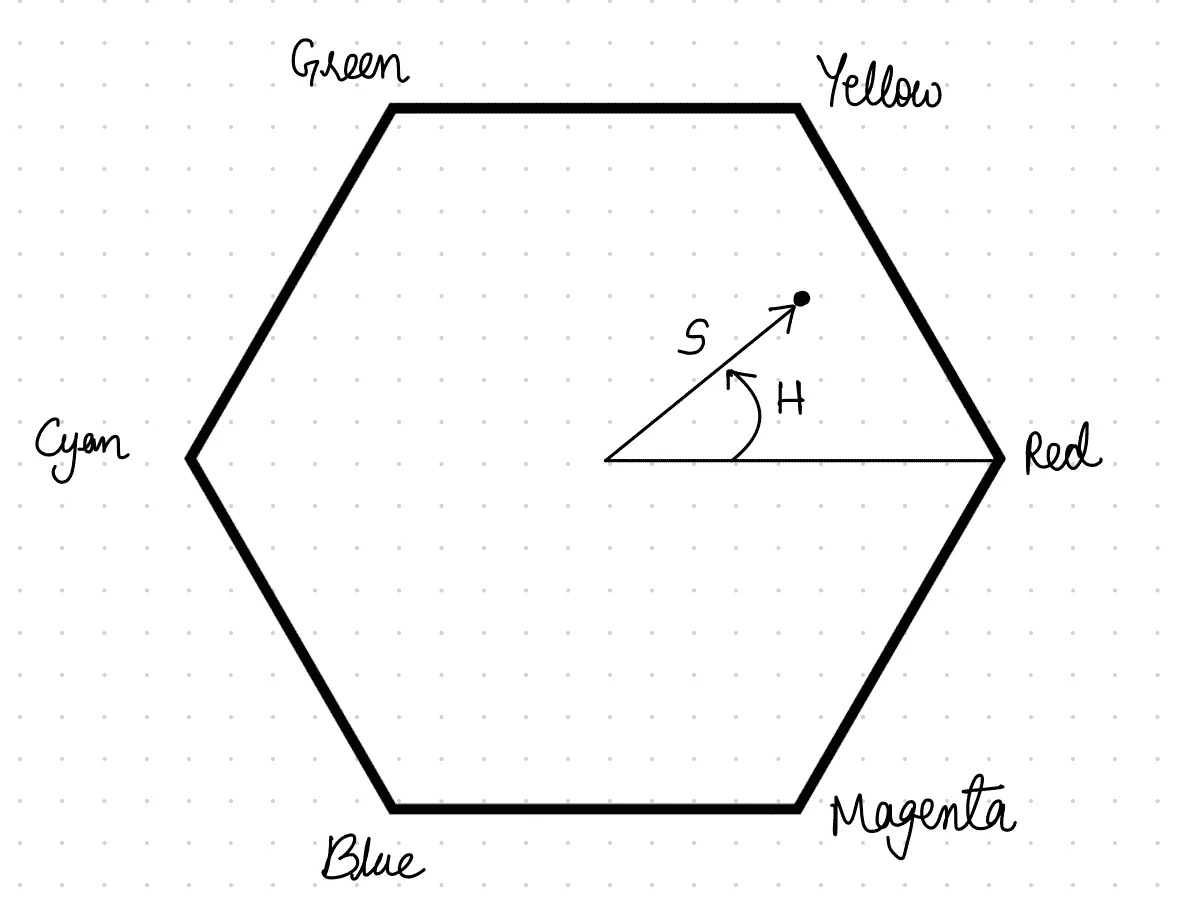 Green
Yellow
S
H
Cyan
Red
Magenta
Blue